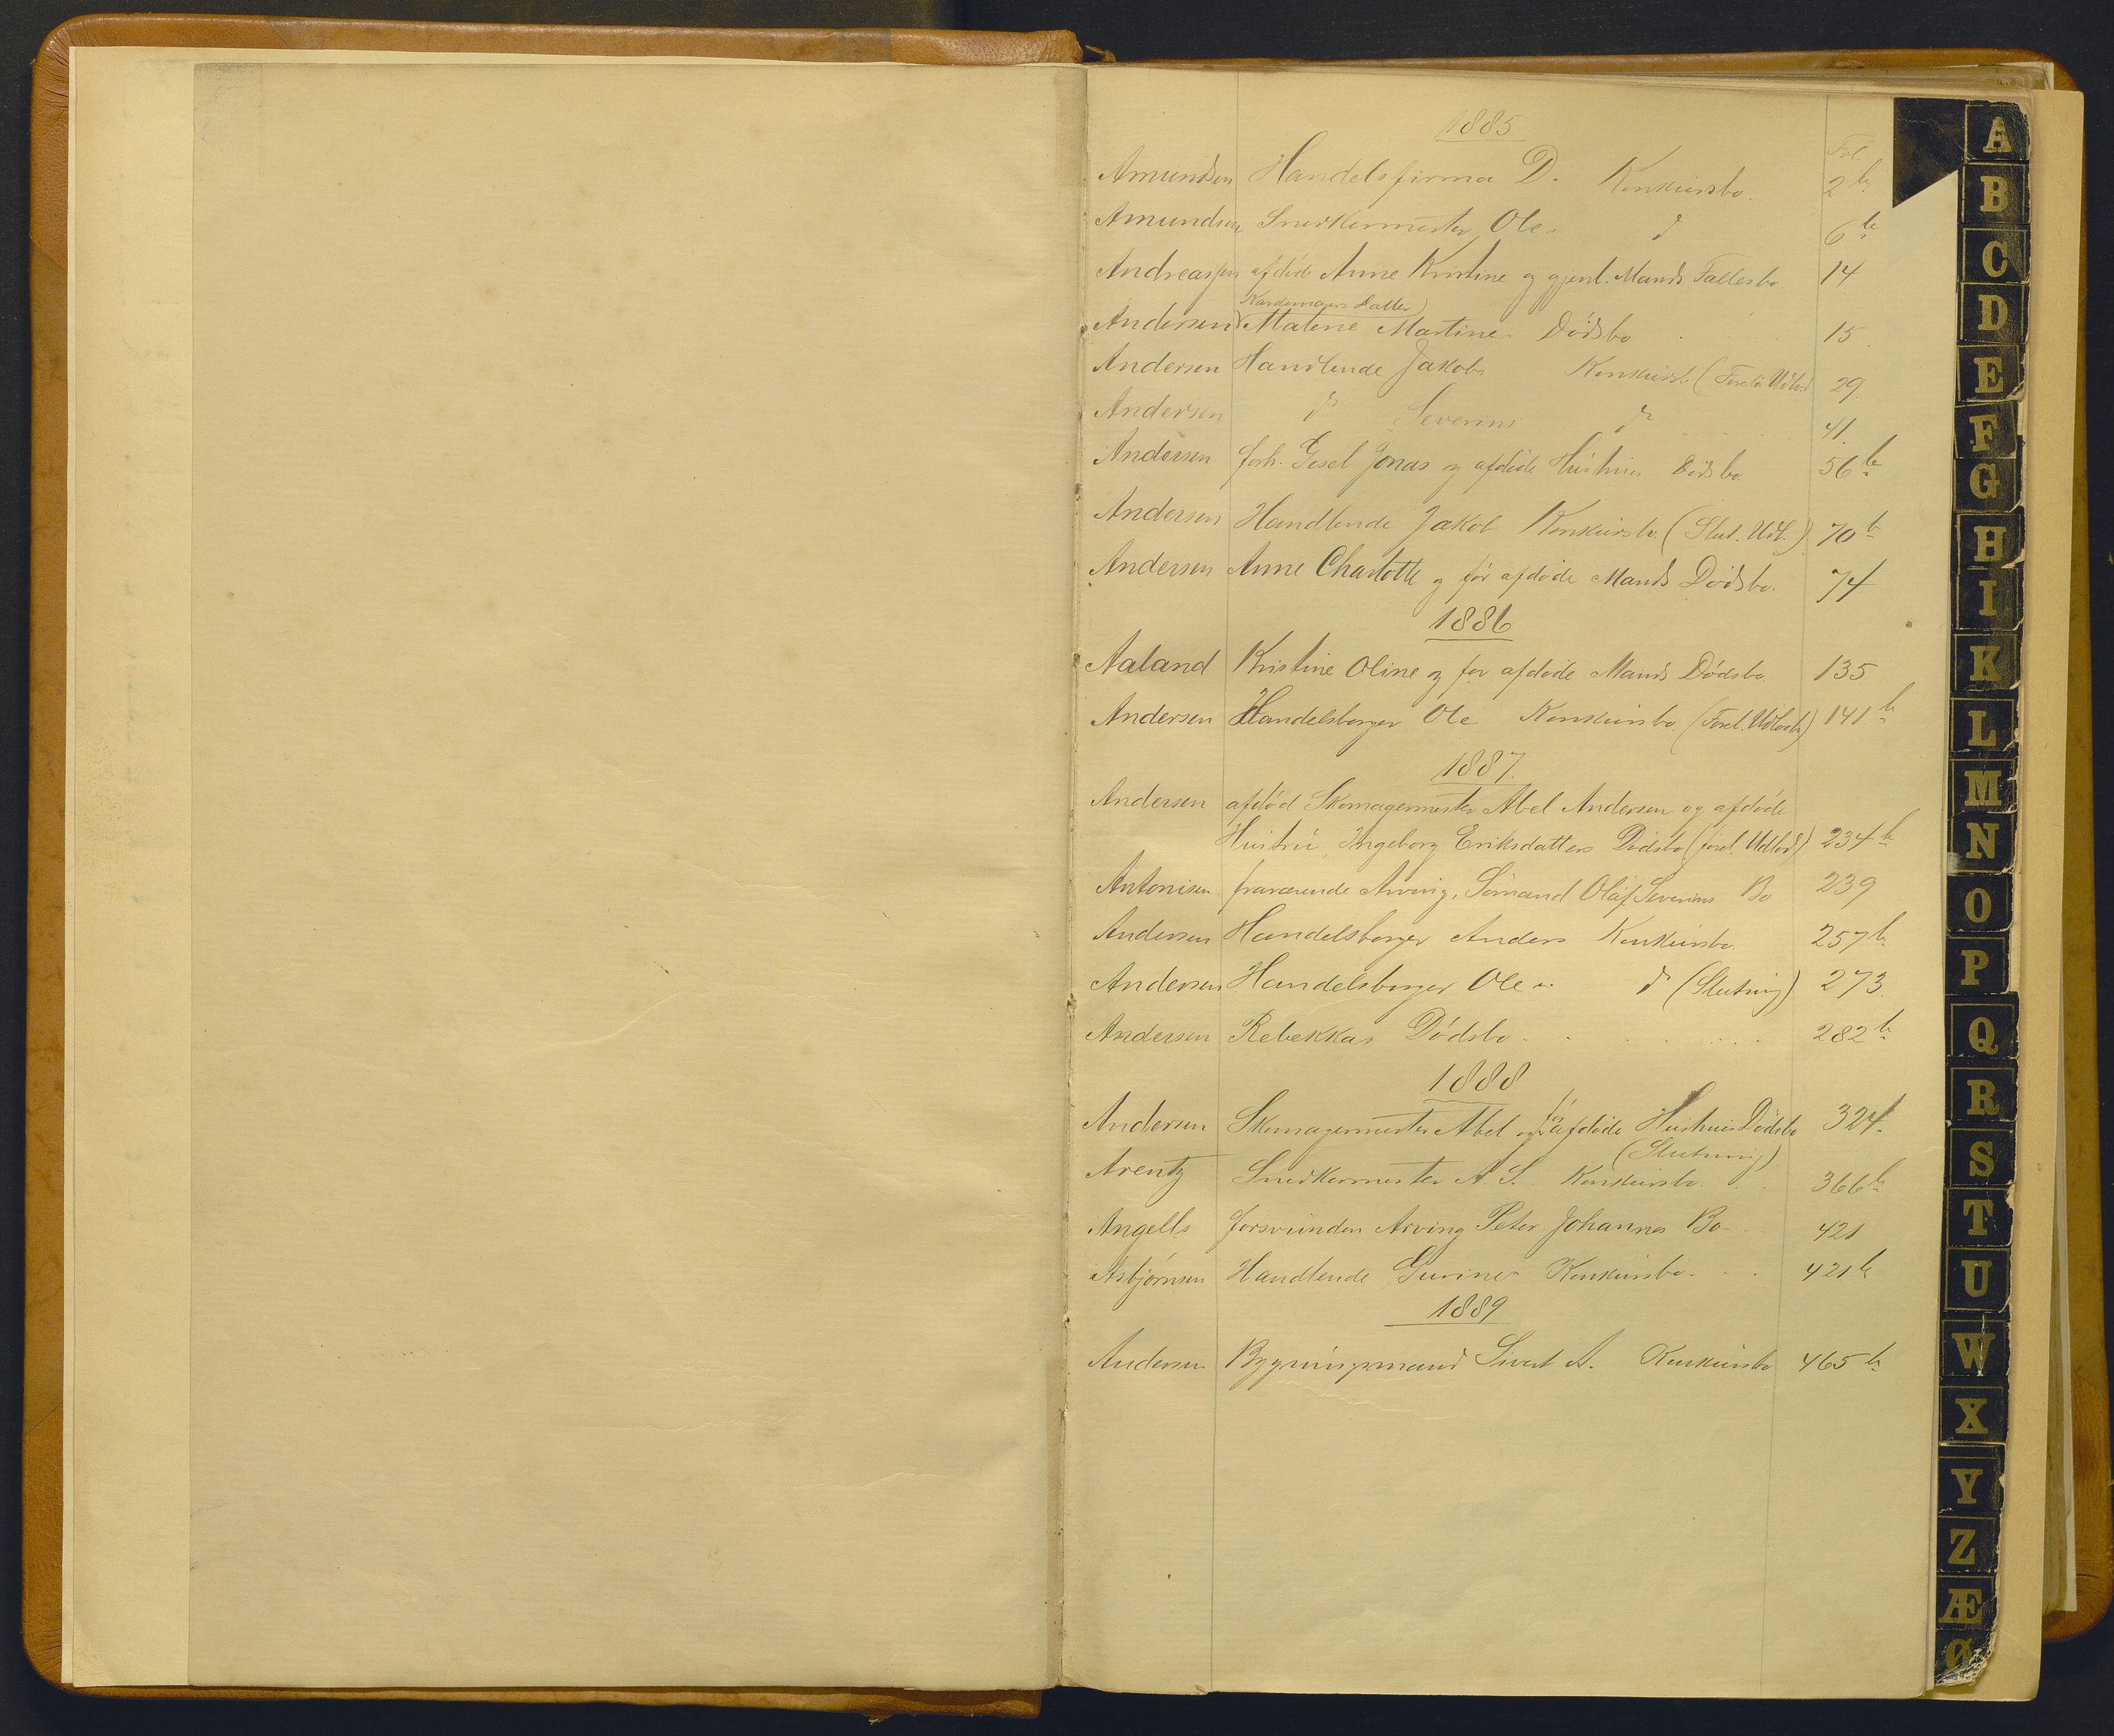 1885
Fol.
Amundsen Handelsfirma D. Konkursbo. 2 b
Amundsen Snedkermester Ole d 6 b
Andreassen afdøde Anne Kristine og gjenl. Mands Fællesbo 14
Datter
Andersen Malene Martine Dødsbo 15
Andersen Handlende Jakobs Konkursb. ( 29
Andersen d Severins d 41.
Andersen forh. Jonas og afdøde Hustrus Dødsbo 56 b
Andersen Handlende Jakob Konkursbo. (Slut. Udl.) 70 b
Andersen Anne Charlotte og før afdøde Mands Dødsbo. 74
1886
Aaland Kristine Oline og før afdøde Mands Dødsbo. 135
Andersen Handelsborger Ole Konkursbo (Forel. Udlodn) 141 b
1887.
Andersen afdød Skomagermester Abel Andersen og afdøde
Hustru Ingeborg Eriksdatters Dødsbo (forel. Udlod) 234 b
Antonisen fraværende Arving, Sømand Olaf Severins Bo 239
Andersen Handelsborger Anders Konkursbo. 257 b
Andersen Handelsborger Ole d (Slutning) 273
Andersen Rebekkas Dødsbo 282 b
1888
Andersen Skomagermester Abel og før afdøde Hustrus Dødsbo 324.
(Slutning)
Arentz Snedkermester A. S. Konkursbo. 366 b
Angells forsvunden Arving Peter Johannes Bo 421
Asbjørnsen Handlende Konkursbo. 421 b
1889
Andersen Bygningsmand Sivert A. Konkursbo 465 b
A
B
C
D
E
F
G
H
I
K
L
M
N
O
P
Q
R
S
T
U
W
X
Y
Z
Æ
Ø